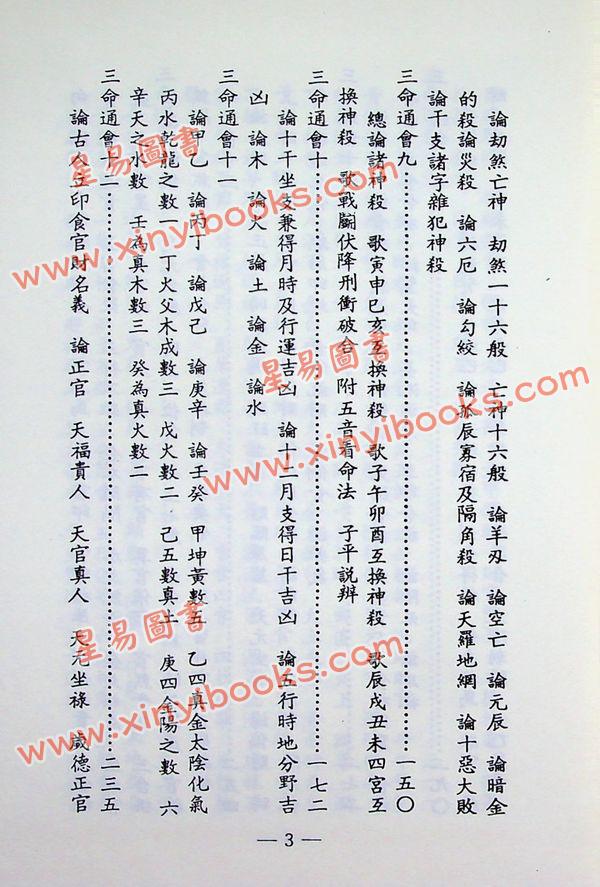 論劫煞亡神　劫煞一十六般　亡神十六般　論羊刃　論空亡　論元辰　論暗金
的殺論災殺　論六厄　論勾絞　論孤辰寡宿及隔角殺　論天羅地網　論十惡大敗
論干支諸字雜犯神殺
三命通會九⋯⋯⋯⋯⋯⋯⋯⋯⋯⋯⋯⋯一五〇
總論諸神殺　歌寅申巳亥互換神殺　歌子午卯酉互換神殺　歌辰戌丑未四宮互
換神殺　歌戰鬭伏降刑衝破合　附五音看命法　子平說辨
三命通會十⋯⋯⋯⋯⋯⋯⋯⋯⋯⋯⋯⋯一七二
論十干坐支兼得月時及行運吉凶　論十二月支得日干吉凶　論五行時地分野吉
凶　論木　論火　論土　論金　論水
三命通會十一
論甲乙　論丙丁　論戊己　論庚辛　論壬癸　甲坤黃數五　乙四真金太陰化氣
丙水乾龍之數一　丁火父木成數三　戊火數二　己五數真土　庚四金陽之數　六
辛天之水數　壬為真木數三　癸為真火數二
三命通會十二⋯⋯⋯⋯⋯⋯⋯⋯⋯⋯⋯⋯二三五
論古人立印食官財名義　論正官　天福貴人　天官真人　天元坐祿　歲德正官
— 3 —
星易圖書
www.xinyibooks.com
星易圖書
www.xinyibooks.com
星易圖書
www.xinyibooks.com